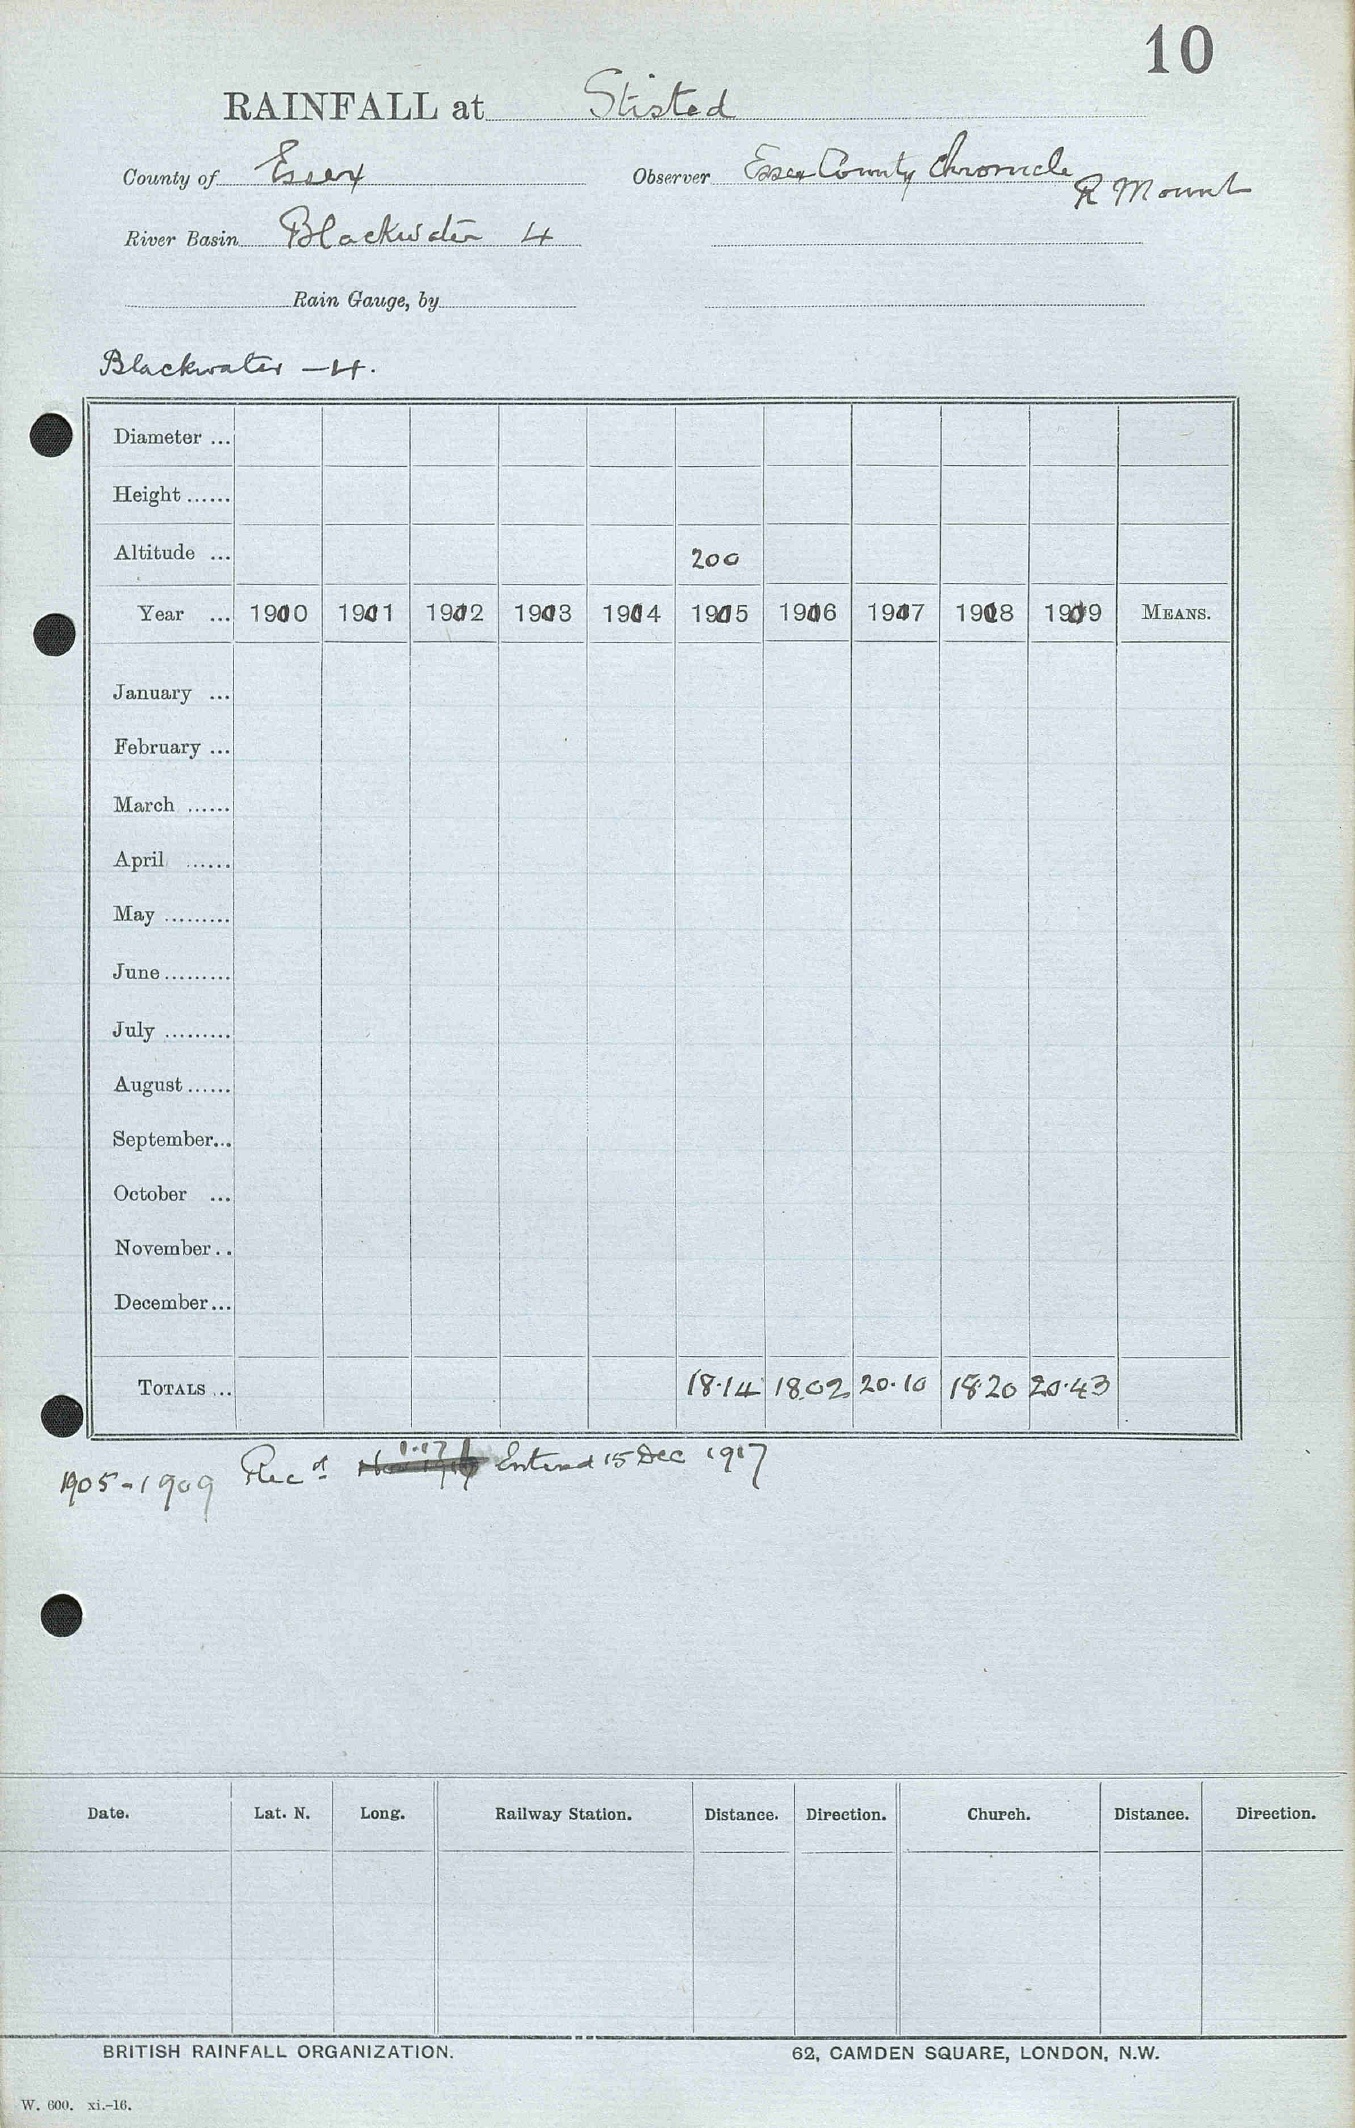 10
RAINFALL at Stisted
County of Essex Observer Essex County Chronicle
R Mount
River Basin Blackwater 4
Rain Gauge, by
Blackwater — 4.
Diameter ...
Height ......
Altitude ... 200
Year ... 1900 1901 1902 1903 1904 1905 1906 1907 1908 1909 MEANS.
January ...
February ...
March ......
April ......
May .........
June .........
July .........
August ......
September...
October ...
November ..
December...
TOTALS ... 18.14 18.02 20.10 18.20 20.43
1905-1909 Recd 1.17 Entered 15 Dec 1917
Date. Lat. N. Long. Railway Station. Distance. Direction. Church. Distance. Direction.
BRITISH RAINFALL ORGANIZATION. 62, CAMDEN SQUARE, LONDON, N.W.
W. 600. xi.-16.